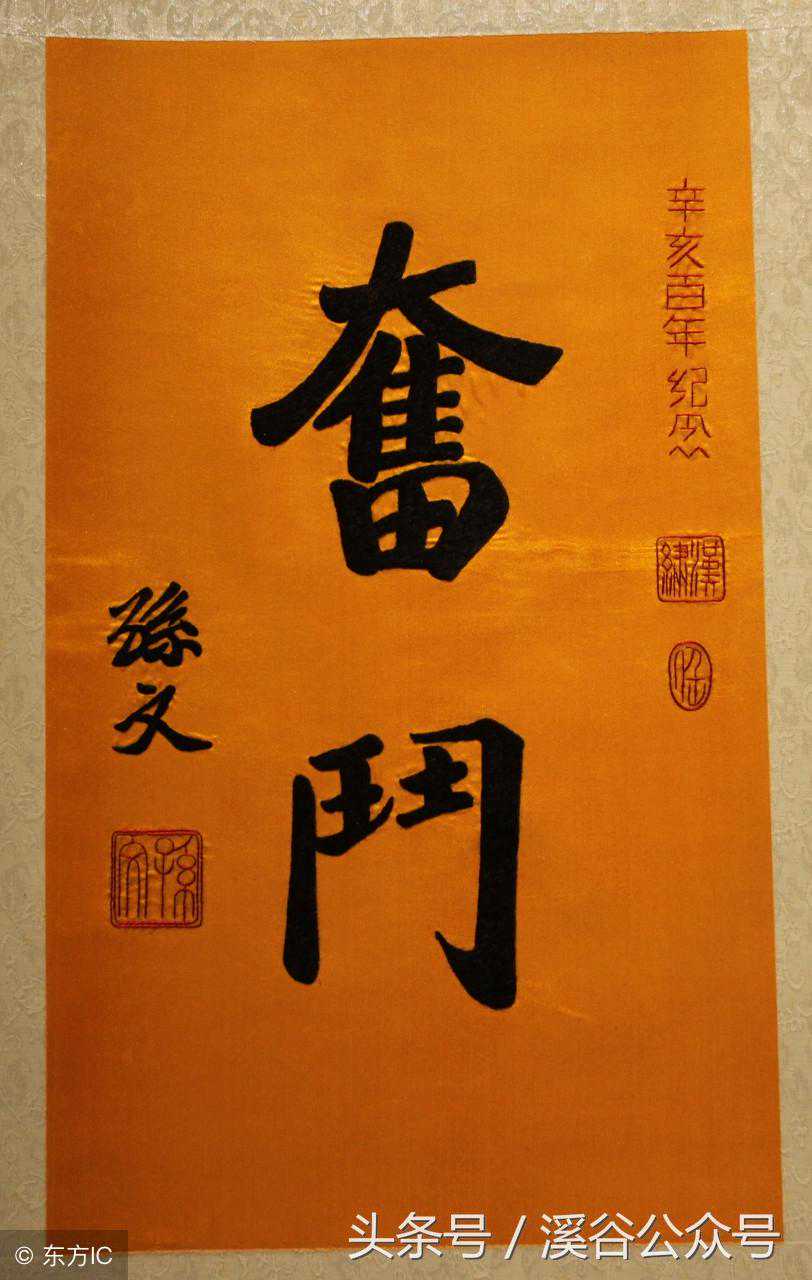 辛亥百年纪念
漢繡
奮鬥
孫文
孫文
头条号 / 溪谷公众号
© 东方IC